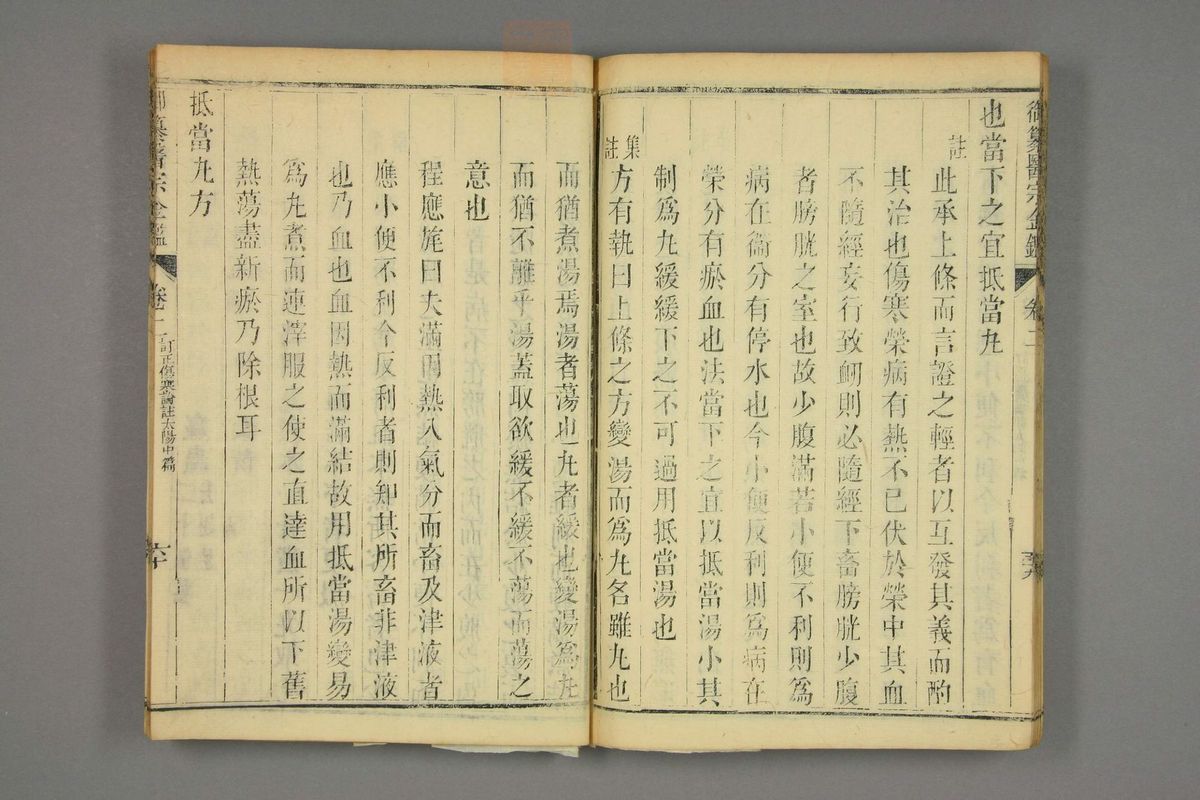 御纂醫宗金鑑 卷二 五十九
也當下之宜抵當丸
註 此承上條而言證之輕者以互發其義而酌
其治也傷寒榮病有熱不已伏於榮中其血
不隨經妄行致衂則必隨經下畜膀胱少腹
者膀胱之室也故少腹滿若小便不利則爲
病在衞分有停水也今小便反利則爲病在
榮分有瘀血也法當下之宜以抵當湯小其
制爲丸緩緩下之不可過用抵當湯也
集註 方有執曰上條之方變湯而爲丸名雖丸也
而猶煮湯焉湯者蕩也丸者緩也變湯爲丸
而猶不離乎湯蓋取欲緩不緩不蕩而蕩之
意也
程應旄曰夫滿因熱入氣分而畜及津液者
應小便不利今反利者則知其所畜非津液
也乃血也血因熱而滿結故用抵當湯變易
爲丸煮而連滓服之使之直達血所以下舊
熱蕩盡新瘀乃除根耳
抵當丸方
御纂醫宗金鑑 卷二 訂正傷寒論註太陽中篇 六十